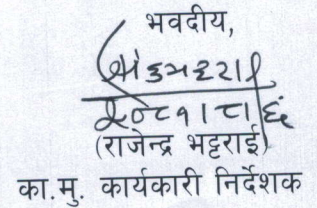 भवदीय,
२०८१।८।६
(राजेन्द्र भट्टराई)
का.मु. कार्यकारी निर्देशक